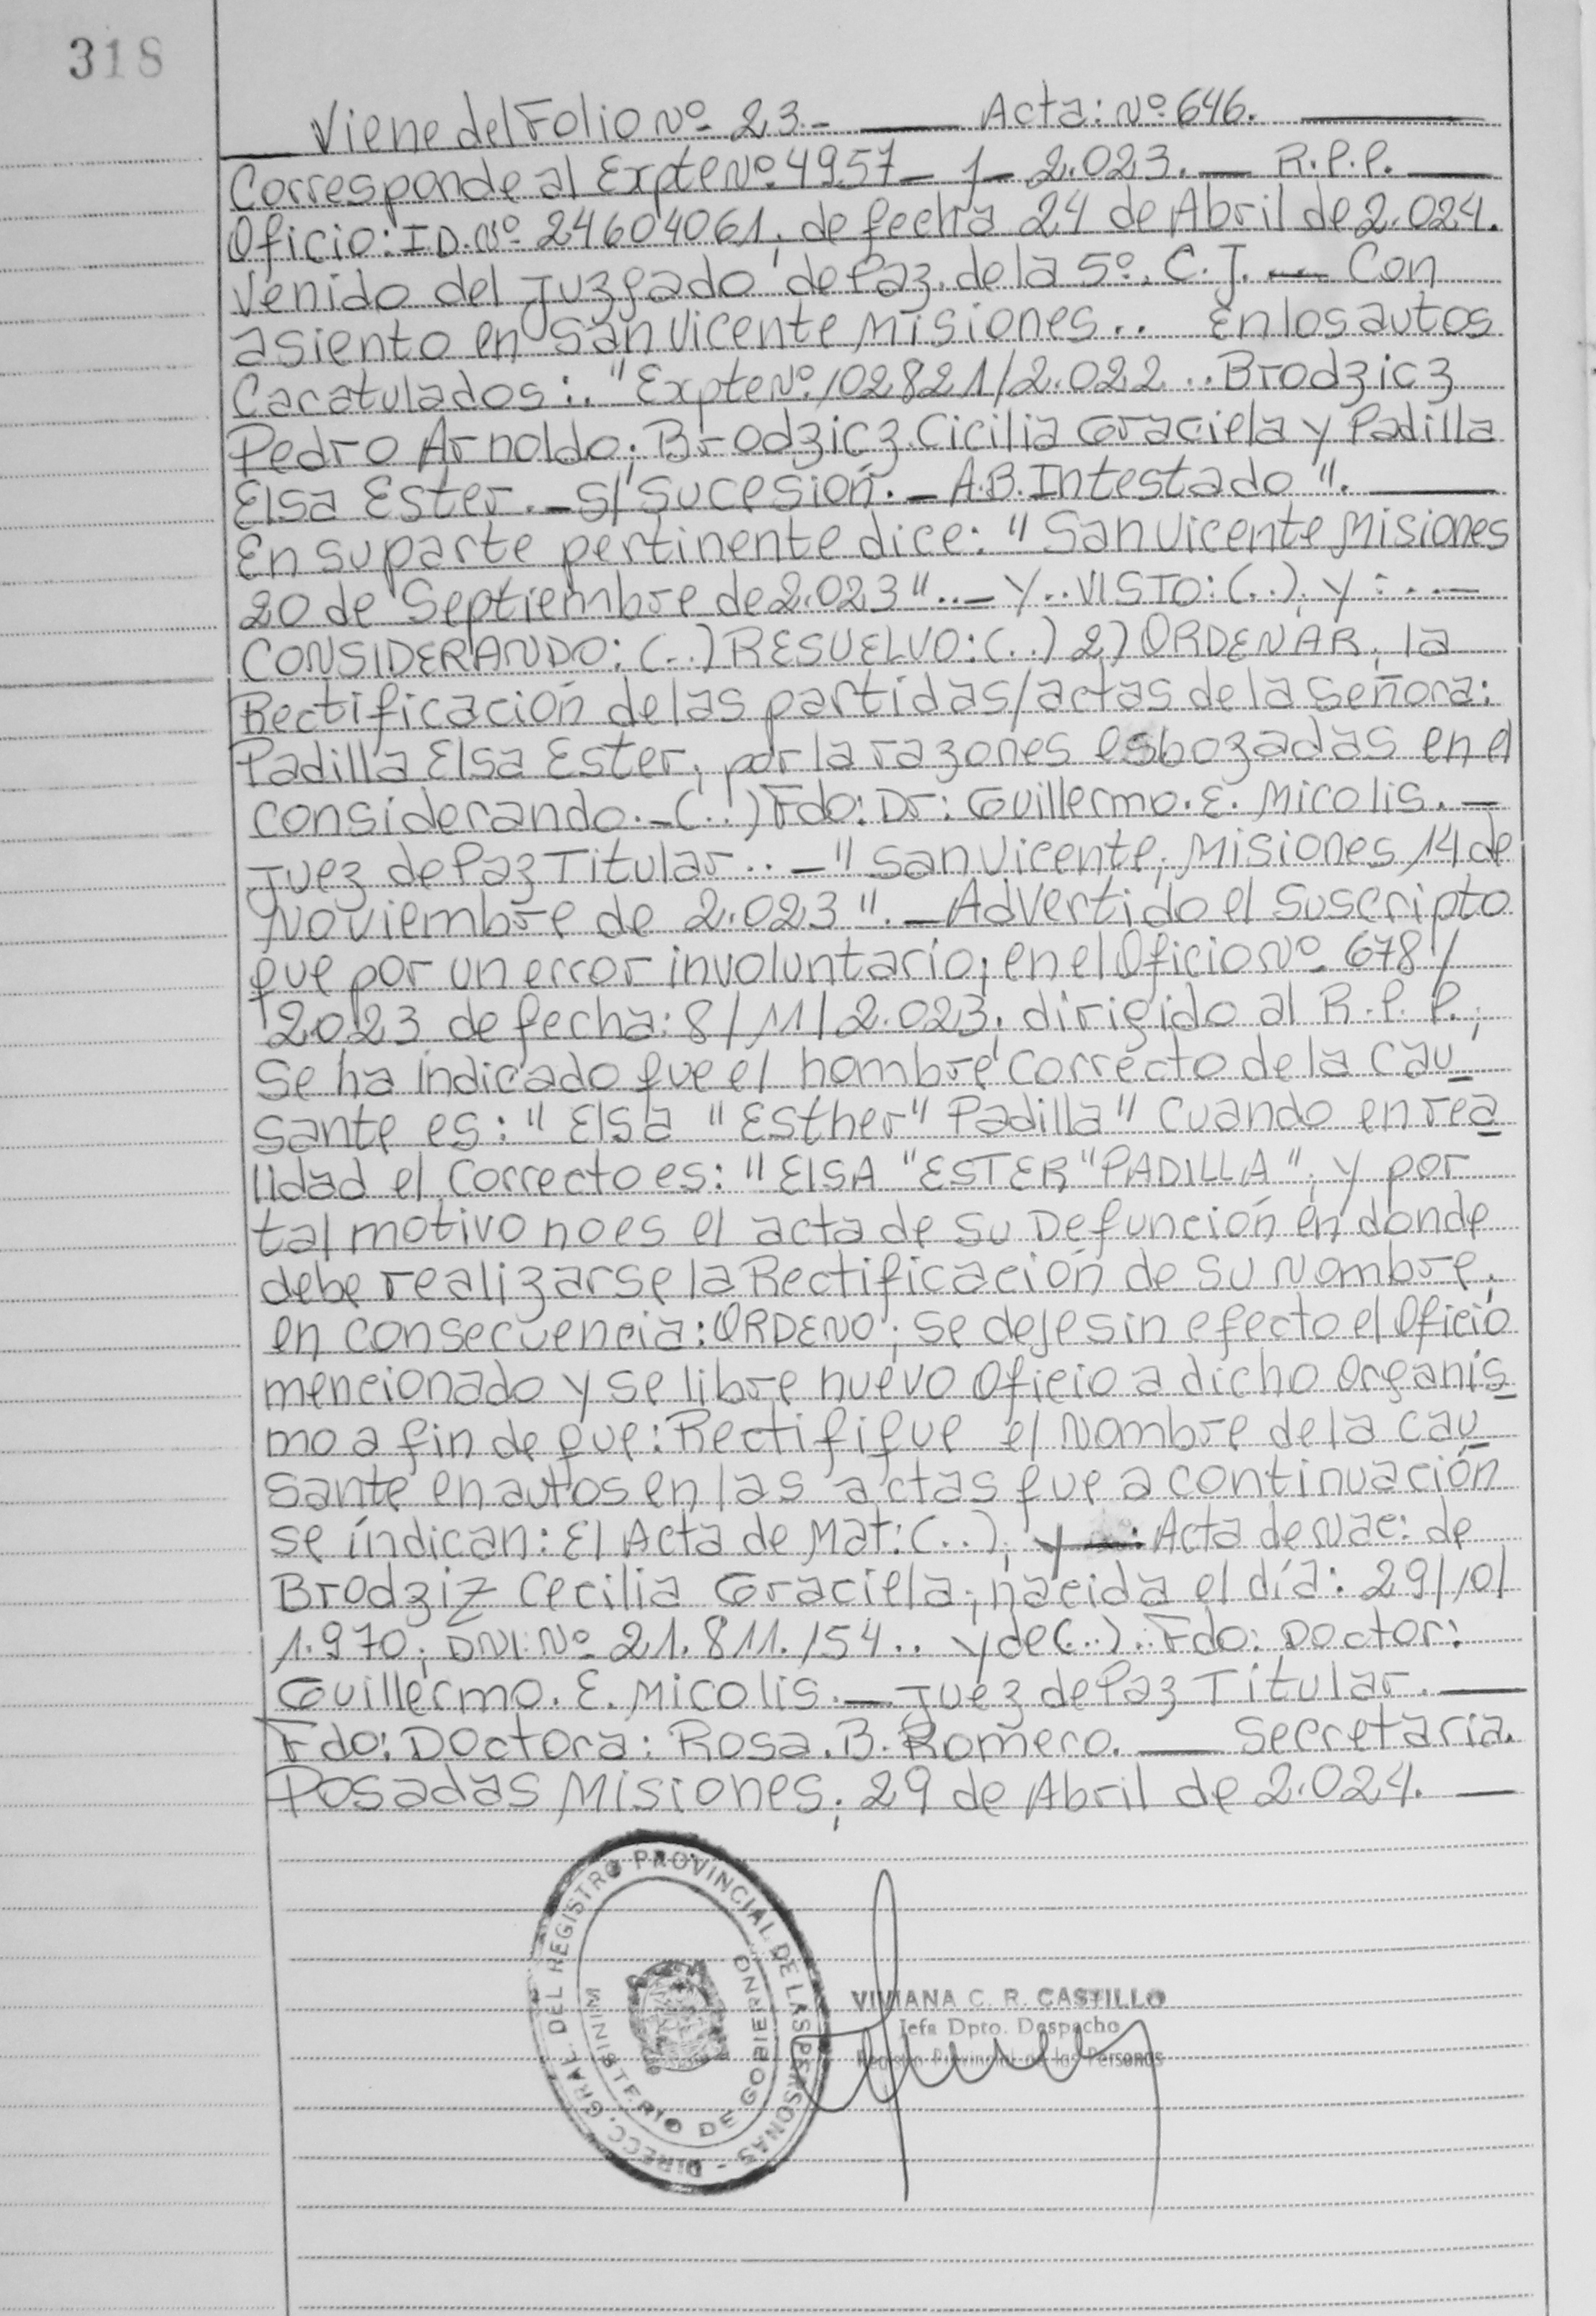 318
Viene del Folio Nº 23.- Acta: Nº 646.
Corresponde al Expte Nº. 4957 - 1 - 2.023. R.P.P.
Oficio: I D. Nº 24604061, de fecha 24 de Abril de 2.024.
Venido del Juzgado de Paz. de la 5º. C. J. - Con
asiento en San Vicente Misiones.. En los autos
Caratulados:. "Expte Nº. 102821/2.022 .. Brodzicz
Pedro Arnoldo; Brodzicz. Cicilia Graciela y Padilla
Elsa Ester. - S/ Sucesión. - A.B. Intestado".
En su parte pertinente dice: "San Vicente Misiones
20 de Septiembre de 2.023".. - Y.. VISTO: (..), y :
CONSIDERANDO: (..) RESUELVO: (..) 2) ORDENAR, la
Rectificación de las partidas/actas de la Señora:
Padilla Elsa Ester, por la razones esbozadas en el
considerando. - (..) Fdo: Dr: Guillermo. E. Micolis. -
Juez de Paz Titular.. - "San Vicente, Misiones, 14 de
Noviembre de 2.023". - Advertido el suscripto
que por un error involuntario, en el Oficio Nº 678/
2023 de fecha: 8/11/2.023, dirigido al R.P.P.,
Se ha indicado que el nombre correcto de la Cau
sante es: "Elsa "Esther" Padilla" Cuando en rea
lidad el Correcto es: "ElSA "ESTER" PADILLA", y por
tal motivo no es el acta de su Defunción en donde
debe realizarse la Rectificación de su Nombre,
en consecuencia: ORDENO; se deje sin efecto el Oficio
mencionado y se libre nuevo Oficio a dicho Organis
mo a fin de que: Rectifique el Nombre de la Cau
sante en autos en las actas que a continuación
se indican: El Acta de Mat: (..), y : Acta de Nac: de
Brodziz Cecilia Graciela, nacida el día: 29/10/
1.970, DNI: Nº 21.811.154.. y de (..). Fdo: Doctor:
Guillermo. E. Micolis. - Juez de Paz Titular.
Fdo: Doctora: Rosa. B. Romero. Secretaria.
Posadas Misiones, 29 de Abril de 2.024.
DIRECC. GRAL. DEL REGISTRO PROVINCIAL DE LAS PERSONAS -
MINISTERIO DE GOBIERNO
VIVIANA C. R. CASTILLO
Jefa Dpto. Despacho
Registro Provincial de las Personas